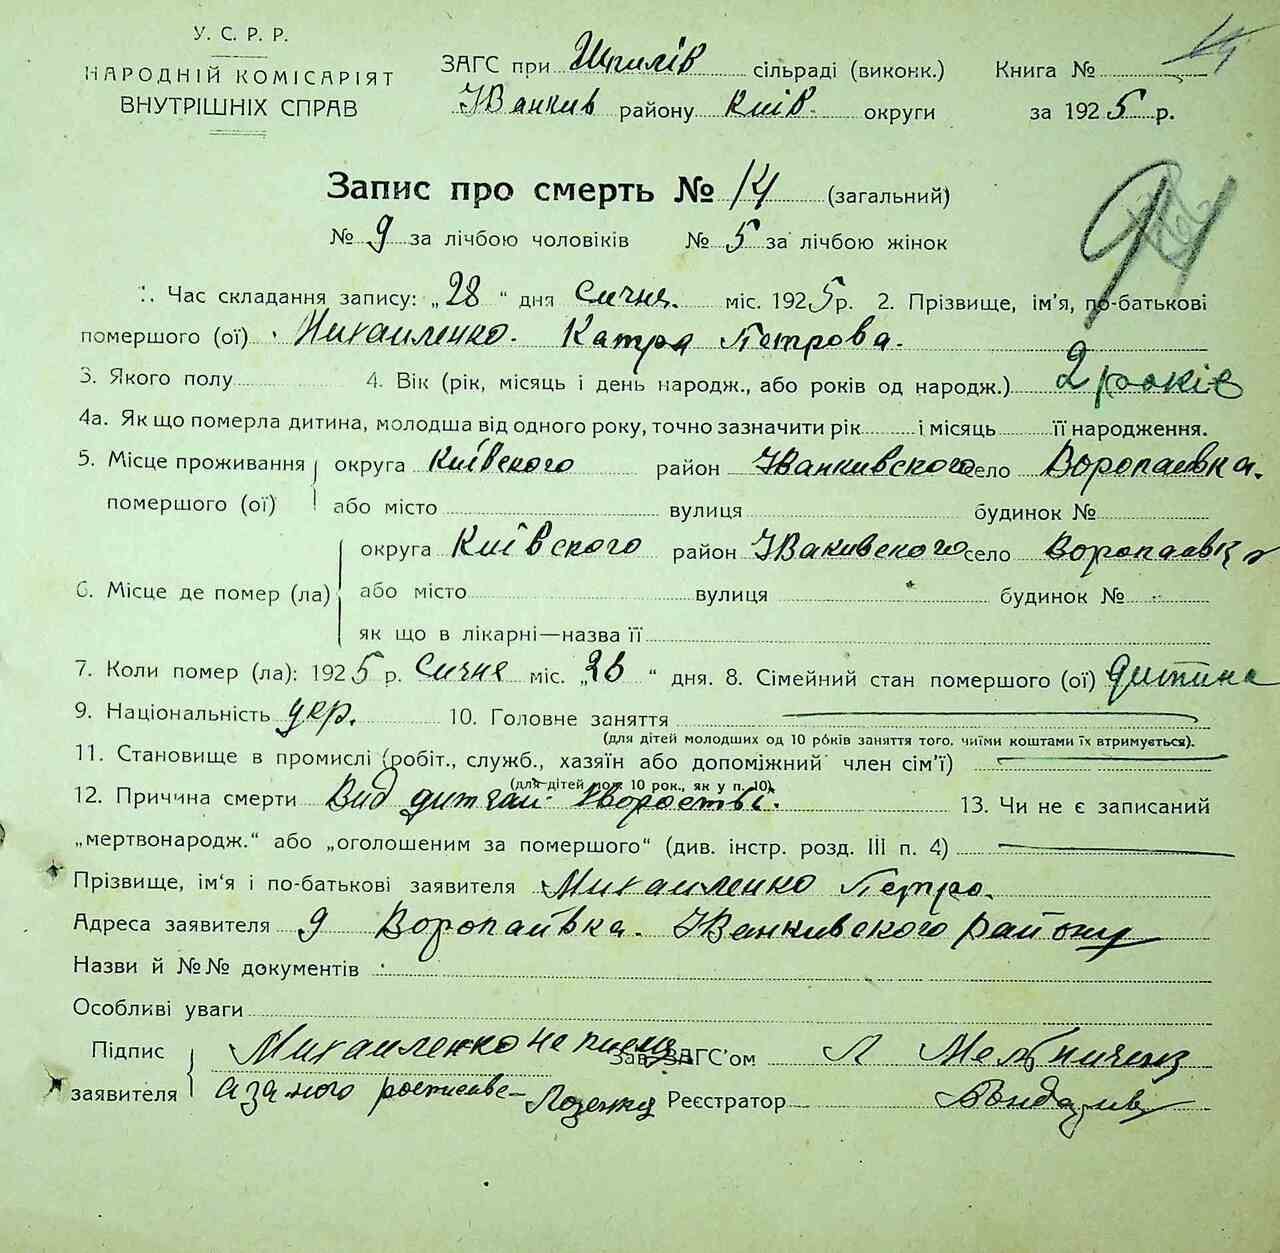 У. С. Р. Р.
НАРОДНІЙ КОМІСАРІЯТ
ВНУТРІШНІХ СПРАВ
ЗАГС при Шпилів сільраді (виконк.)
Іванкив району Київ. округи
Книга №
за 1925 р.
Запис про смерть № 14 (загальний)
№ 9 за лічбою чоловіків № 5 за лічбою жінок
1. Час складання запису: „28“ дня Сичня. міс. 1925 р. 2. Прізвище, ім'я, по-батькові
помершого (ої) Михаиленко. Катря Петрова.
3. Якого полу 4. Вік (рік, місяць і день народж., або років од народж.) 2 років
4а. Як що померла дитина, молодша від одного року, точно зазначити рік і місяць її народження.
5. Місце проживання округа Київского район Іванкивского село Воропаивка.
помершого (ої) або місто вулиця будинок №
округа Київского район Івакивского село Воропаивка
6. Місце де помер (ла) або місто вулиця будинок №
як що в лікарні—назва її
7. Коли помер (ла): 1925 р. Сичня міс. „26“ дня. 8. Сімейний стан помершого (ої) дитина
9. Національність укр. 10. Головне заняття
(для дітей молодших од 10 років заняття того, чиїми коштами їх втримується).
11. Становище в промислі (робіт., служб., хазяїн або допоміжний член сім'ї)
(для дітей мол. 10 рок., як у п. 10).
12. Причина смерти Вид дитчай хворости. 13. Чи не є записаний
„мертвонародж.“ або „оголошеним за помершого“ (див. інстр. розд. III п. 4)
Прізвище, ім'я і по-батькові заявителя Михаиленко Петро.
Адреса заявителя Воропаївка. Іванкивского району
Назви й №№ документів
Особливі уваги
Підпис Михаиленко не письм Зав. ЗАГС'ом Л Мельниченко
заявителя а за ного Реєстратор